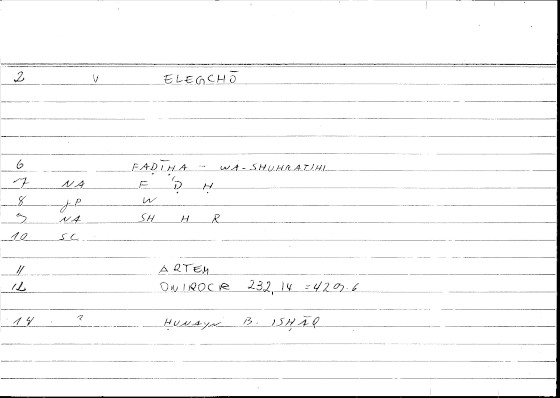 2 V ELEGCHŌ
6 FAḌĪḤA - WA-SHUHRATIHI
7 NA F Ḍ Ḥ
8 JP W
9 NA SH H R
10 SC
11 ARTEM
12 ONIROCR 232,14 = 429.6
14 ? ḤUNAYN B. ISḤĀQ